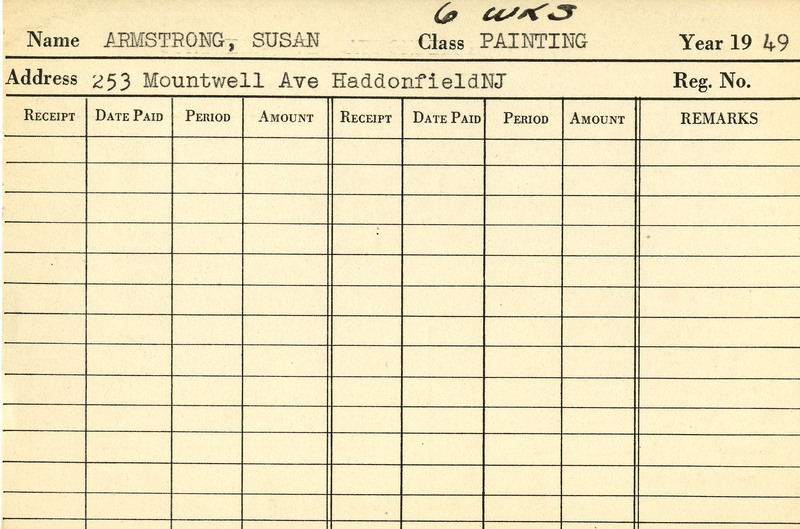 6 WKS
Name ARMSTRONG, SUSAN Class PAINTING Year 19 49
Address 253 Mountwell Ave HaddonfieldNJ Reg. No.
RECEIPT DATE PAID PERIOD AMOUNT RECEIPT DATE PAID PERIOD AMOUNT REMARKS